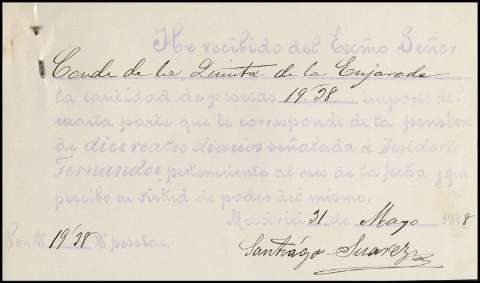 He recibido del Exmo Señor
Conde de la Quinta de la Enjarada
la cantidad de pesetas 19'38 importe de la
cuarta parte que le corresponde de la pension
de diez reales diarios señalada á Desiderio
Fernandez perteneciente al mes de la fecha y que
percibo en virtud de poder del mismo.
Madrid 31 de Mayo 8
Son # 19'38 # pesetas.
Santiago Suarez